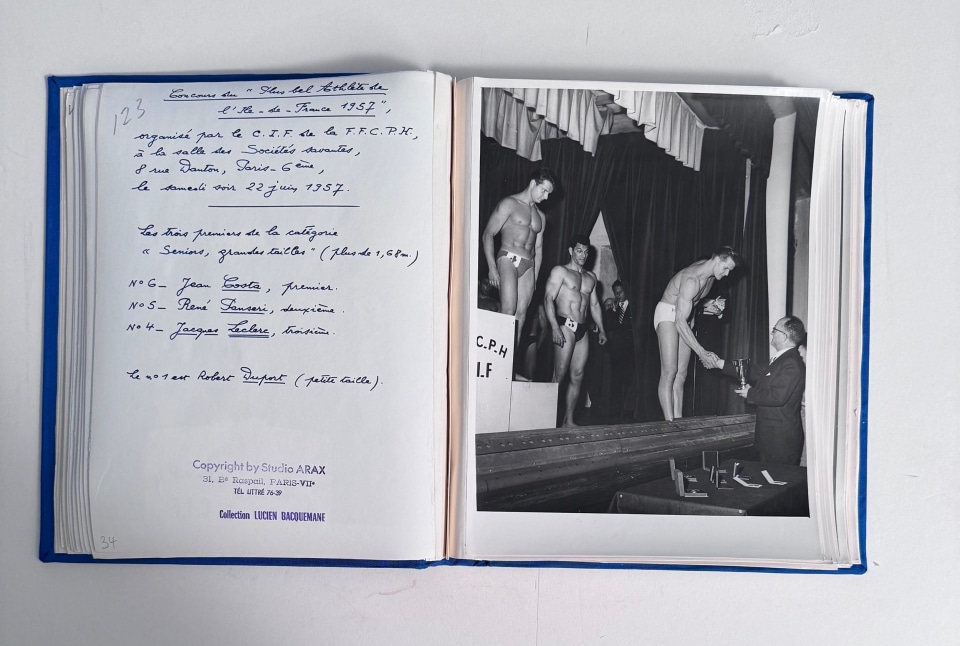 123
Concours du "Plus bel Athlète de
l'Ile-de-France 1957",
organisé par le C.I.F. de la F.F.C.P.H.,
à la salle des Sociétés savantes,
8 rue Danton, Paris-6ème,
le samedi soir 22 juin 1957.
Les trois premiers de la catégorie
"Seniors, grandes tailles" (plus de 1,68m.)
N°6 - Jean Costa, premier.
N°5 - René Panseri, deuxième.
N°4 - Jacques Leclerc, troisième.
Le n°1 est Robert Duport (petite taille).
Copyright by Studio ARAX
31, Bd Raspail, PARIS-VIIe
TÉL LITTRÉ 76-39
Collection LUCIEN BACQUEMANE
34
C.P.H
I.F